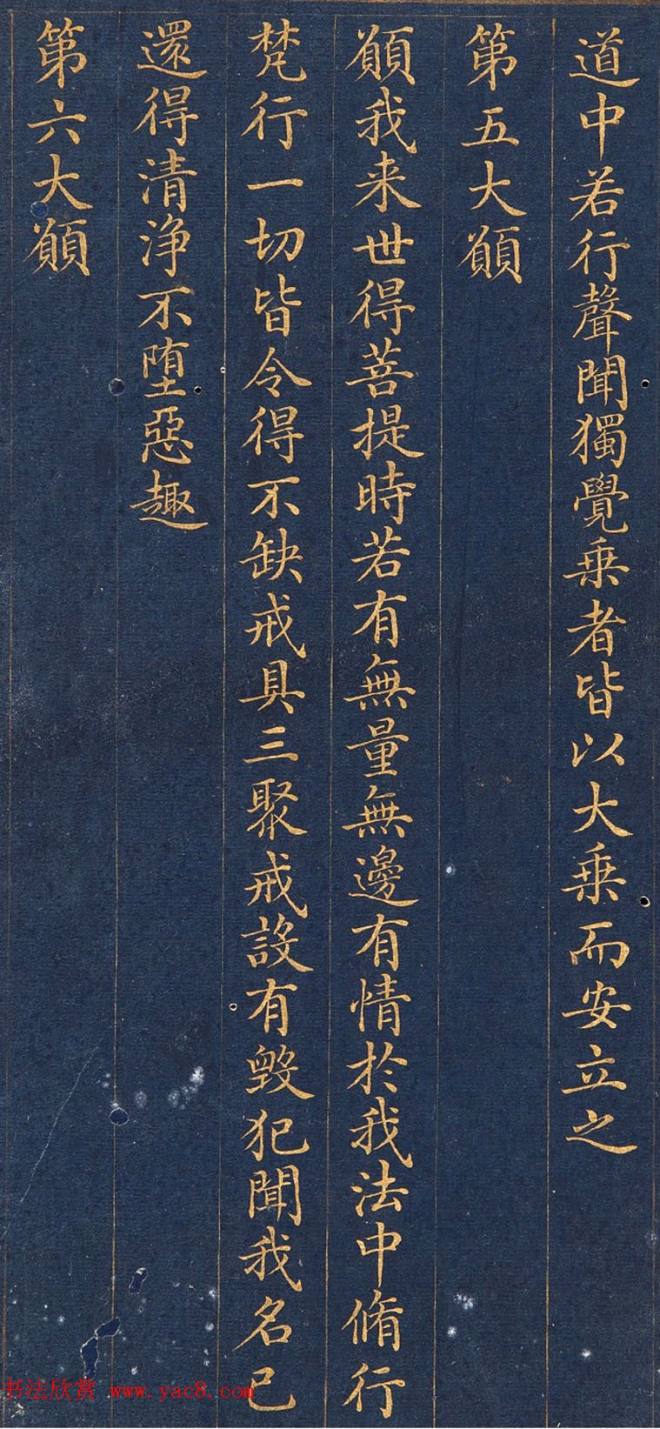 道中若行聲聞獨覺乘者皆以大乘而安立之
第五大願
願我来世得菩提時若有無量無邊有情於我法中脩行
梵行一切皆令得不缺戒具三聚戒設有毀犯聞我名已
還得清淨不堕惡趣
第六大願
书法欣赏 www.yac8.com